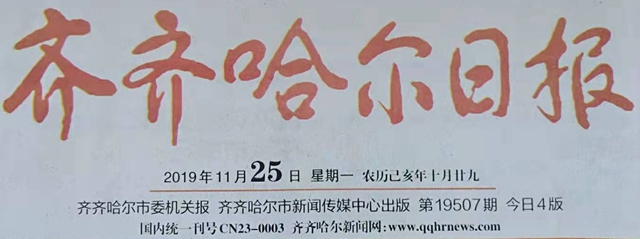 齐齐哈尔日报
2019年11月25日 星期一 农历己亥年十月廿九
齐齐哈尔市委机关报 齐齐哈尔市新闻传媒中心出版 第19507期 今日4版
国内统一刊号CN23-0003 齐齐哈尔新闻网:www.qqhrnews.com